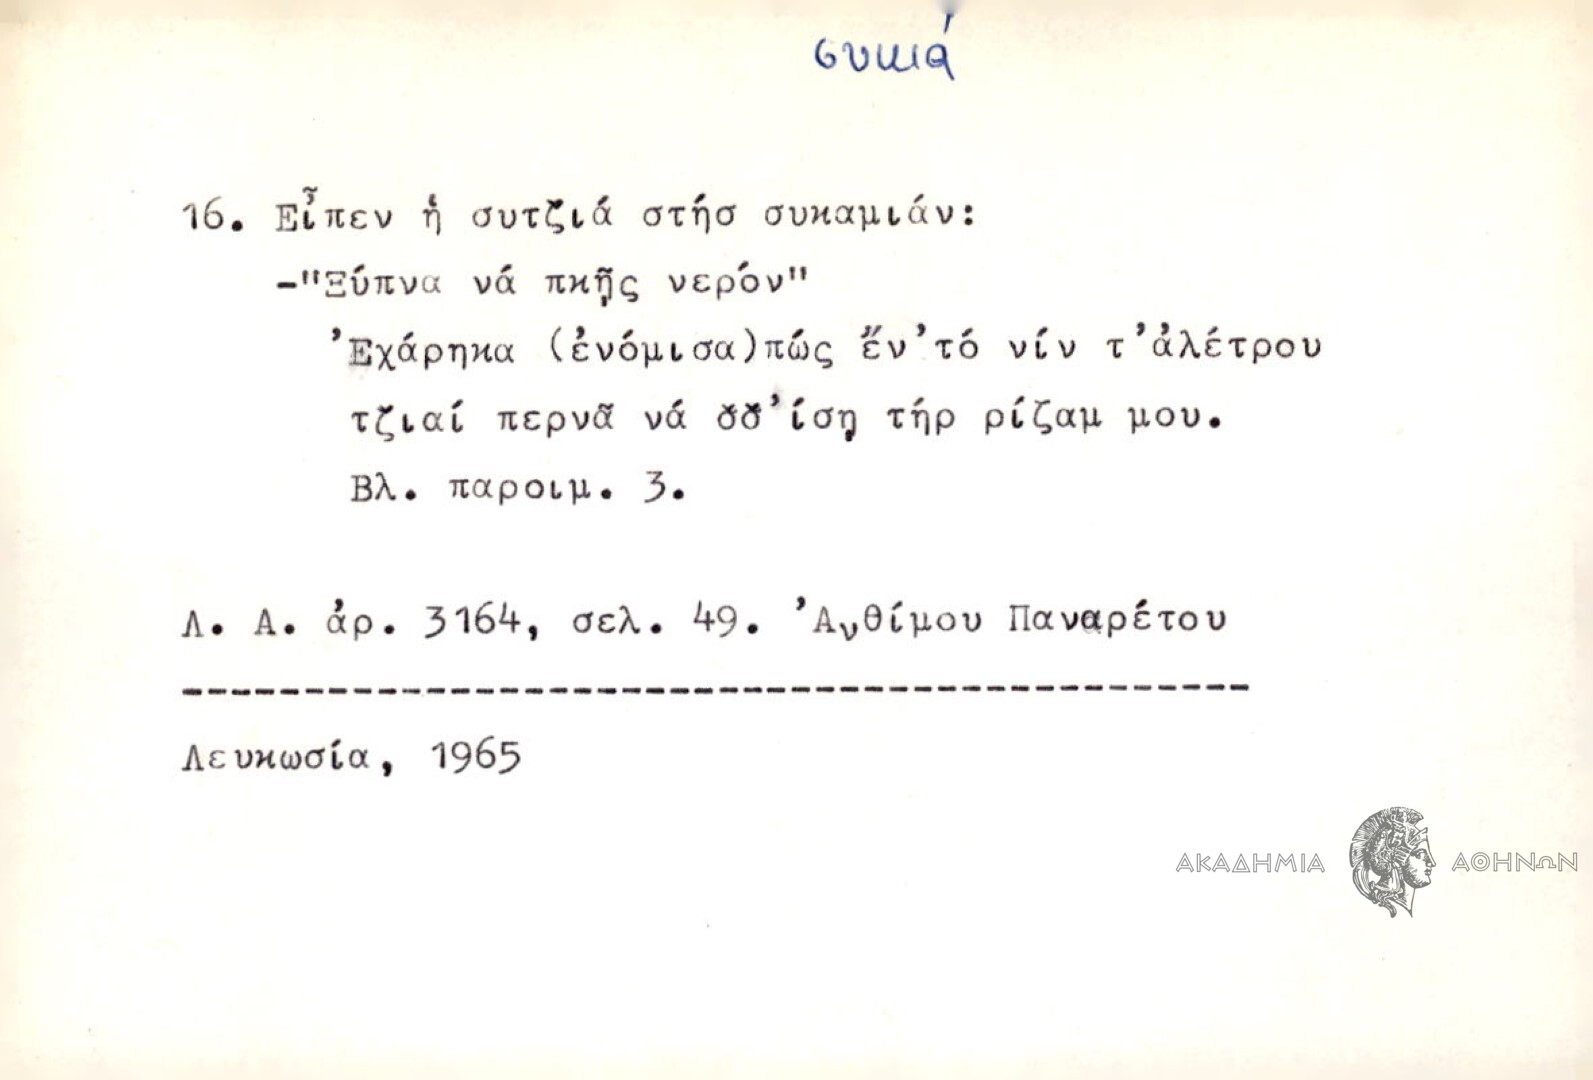 συκιά
16. Εἶπεν ἡ συτζιά στήσ συκαμιάν:
-"Ξύπνα νά πκῇς νερόν"
Ἐχάρηκα (ἐνόμισα)πώς ἔν'τό νίν τ'ἀλέτρου
τζιαί περνᾶ νά δδ'ίσῃ τήρ ρίζαμ μου.
Βλ. παροιμ. 3.
Λ. Α. ἀρ. 3164, σελ. 49. Ἀνθίμου Παναρέτου
Λευκωσία, 1965
ΑΚΑΔΗΜΙΑ ΑΘΗΝΩΝ